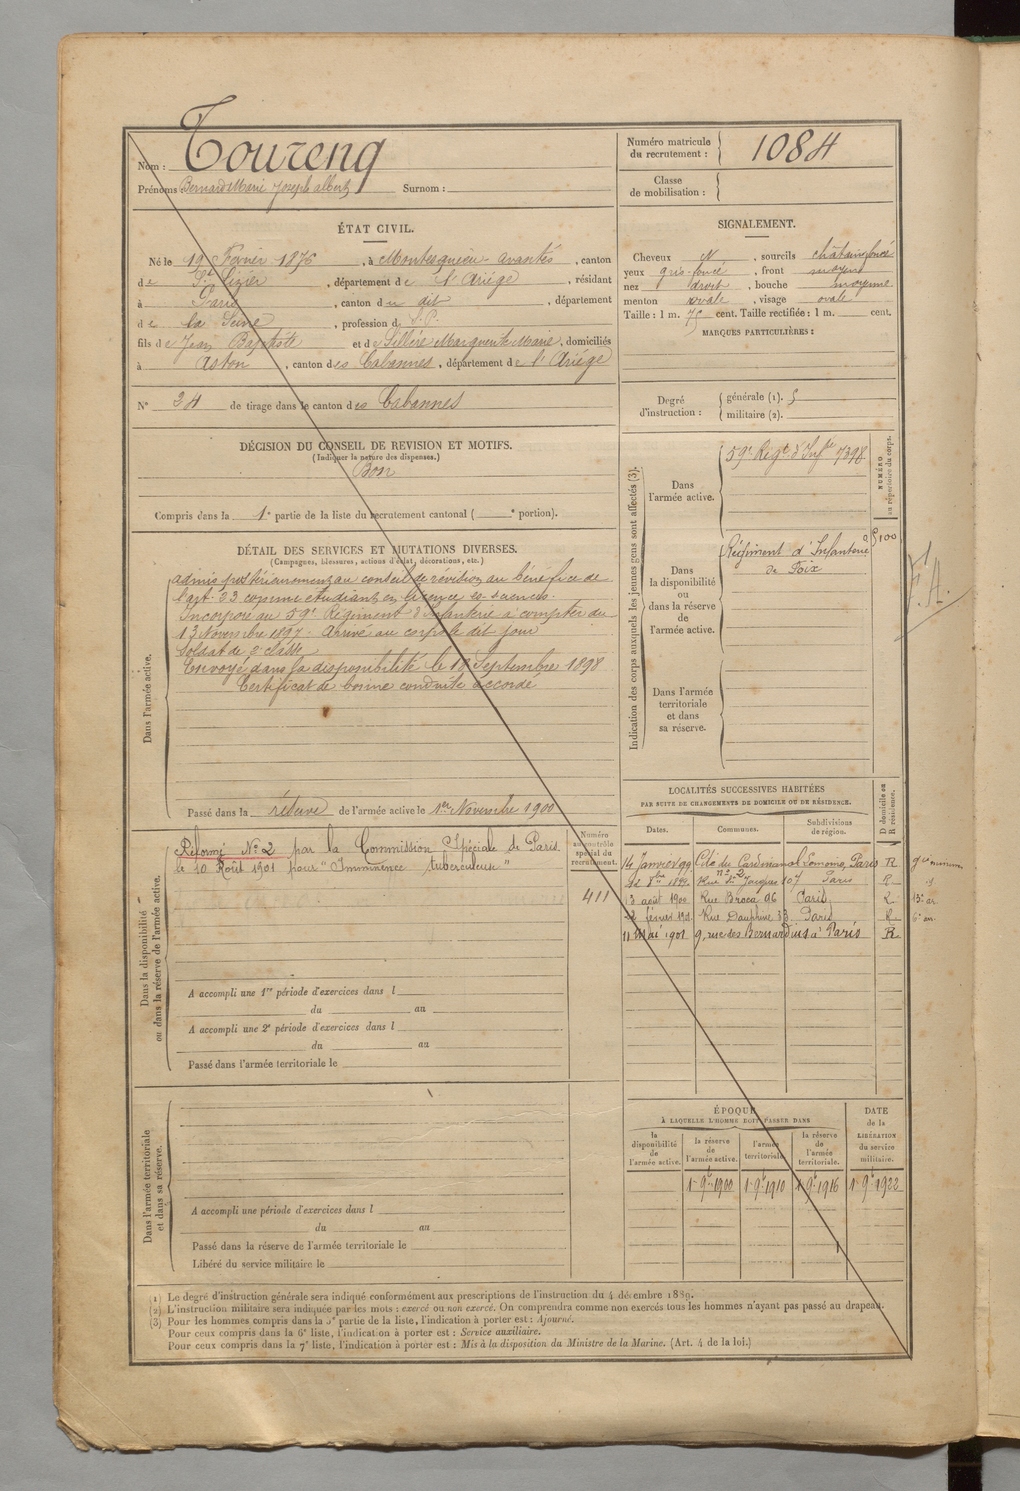 Nom : Toureng
Prénoms : Bernard Marie Joseph albert Surnom :
Numéro matricule du recrutement : 1084
Classe de mobilisation :
ÉTAT CIVIL.
Né le 19 Février 1876, à Montesquieu-avantès, canton
de St Lizier, département de l'Ariége, résidant
à Paris, canton du dit, département
de la Seine, profession d S.P.
fils de Jean Baptiste et de Sillère Marguerite Marie, domiciliés
à Aston, canton des Cabannes, département de l'Ariége
N° 24 de tirage dans le canton des Cabannes
SIGNALEMENT.
Cheveux N, sourcils châtain foncé
yeux gris-foncé, front moyen
nez droit, bouche moyenne
menton ovale, visage ovale
Taille : 1 m. 75 cent. Taille rectifiée : 1 m. cent.
MARQUES PARTICULIÈRES :
Degré d'instruction : générale (1). 5
militaire (2).
DÉCISION DU CONSEIL DE REVISION ET MOTIFS.
(Indiquer la nature des dispenses.)
Bon
Compris dans la 1e partie de la liste du recrutement cantonal ( e portion).
DÉTAIL DES SERVICES ET MUTATIONS DIVERSES.
(Campagnes, blessures, actions d'éclat, décorations, etc.)
Dans l'armée active.
admis postérieurement au conseil de révision au bénéfice de
l'art. 23 comme étudiant en licence ès-sciences.
Incorporé au 59e Régiment d'Infanterie à compter du
13 Novembre 1897. Arrivé au corps le dit jour
Soldat de 2e classe
Envoyé dans la disponibilité le 18 Septembre 1898
Certificat de bonne conduite accordé
Passé dans la réserve de l'armée active le 1er Novembre 1900
Indication des corps auxquels les jeunes gens sont affectés (3).
NUMÉRO au répertoire du corps.
Dans l'armée active.
59e Régt d'Infrie 7398
Dans la disponibilité ou dans la réserve de l'armée active.
Régiment d'Infanterie
de Foix
5100
F.A.
Dans l'armée territoriale et dans sa réserve.
Dans la disponibilité ou dans la réserve de l'armée active.
Réformé N° 2 par la Commission Spéciale de Paris
le 10 Août 1901 pour "Imminence tuberculeuse"
Numéro au contrôle spécial du recrutement.
411
A accompli une 1re période d'exercices dans l
du au
A accompli une 2e période d'exercices dans l
du au
Passé dans l'armée territoriale le
LOCALITÉS SUCCESSIVES HABITÉES
PAR SUITE DE CHANGEMENTS DE DOMICILE OU DE RÉSIDENCE.
Dates. Communes. Subdivisions de région. D domicile ou R résidence.
14 Janvier 99 Cité du Cardinal Lemoine n° 2 Paris R
Rue St Jacques 107 Paris R
13 août 1900 Rue Broca 96 Paris R 13e ar
22 février 1901 Rue Dauphine 33 Paris R 6e arr
11 Mai 1901 9, rue des Bernardins à Paris R
Dans l'armée territoriale et dans sa réserve.
A accompli une période d'exercices dans l
du au
Passé dans la réserve de l'armée territoriale le
Libéré du service militaire le
ÉPOQUE
À LAQUELLE L'HOMME DOIT PASSER DANS
la disponibilité de l'armée active. la réserve de l'armée active. l'armée territoriale. la réserve de l'armée territoriale.
DATE de la LIBÉRATION du service militaire.
1er 9bre 1900 1er 9bre 1910 1er 9bre 1916 1er 9bre 1922
(1) Le degré d'instruction générale sera indiqué conformément aux prescriptions de l'instruction du 4 décembre 1889.
(2) L'instruction militaire sera indiquée par les mots : exercé ou non exercé. On comprendra comme non exercés tous les hommes n'ayant pas passé au drapeau.
(3) Pour les hommes compris dans la 5e partie de la liste, l'indication à porter est : Ajourné.
Pour ceux compris dans la 6e liste, l'indication à porter est : Service auxiliaire.
Pour ceux compris dans la 7e liste, l'indication à porter est : Mis à la disposition du Ministre de la Marine. (Art. 4 de la loi.)